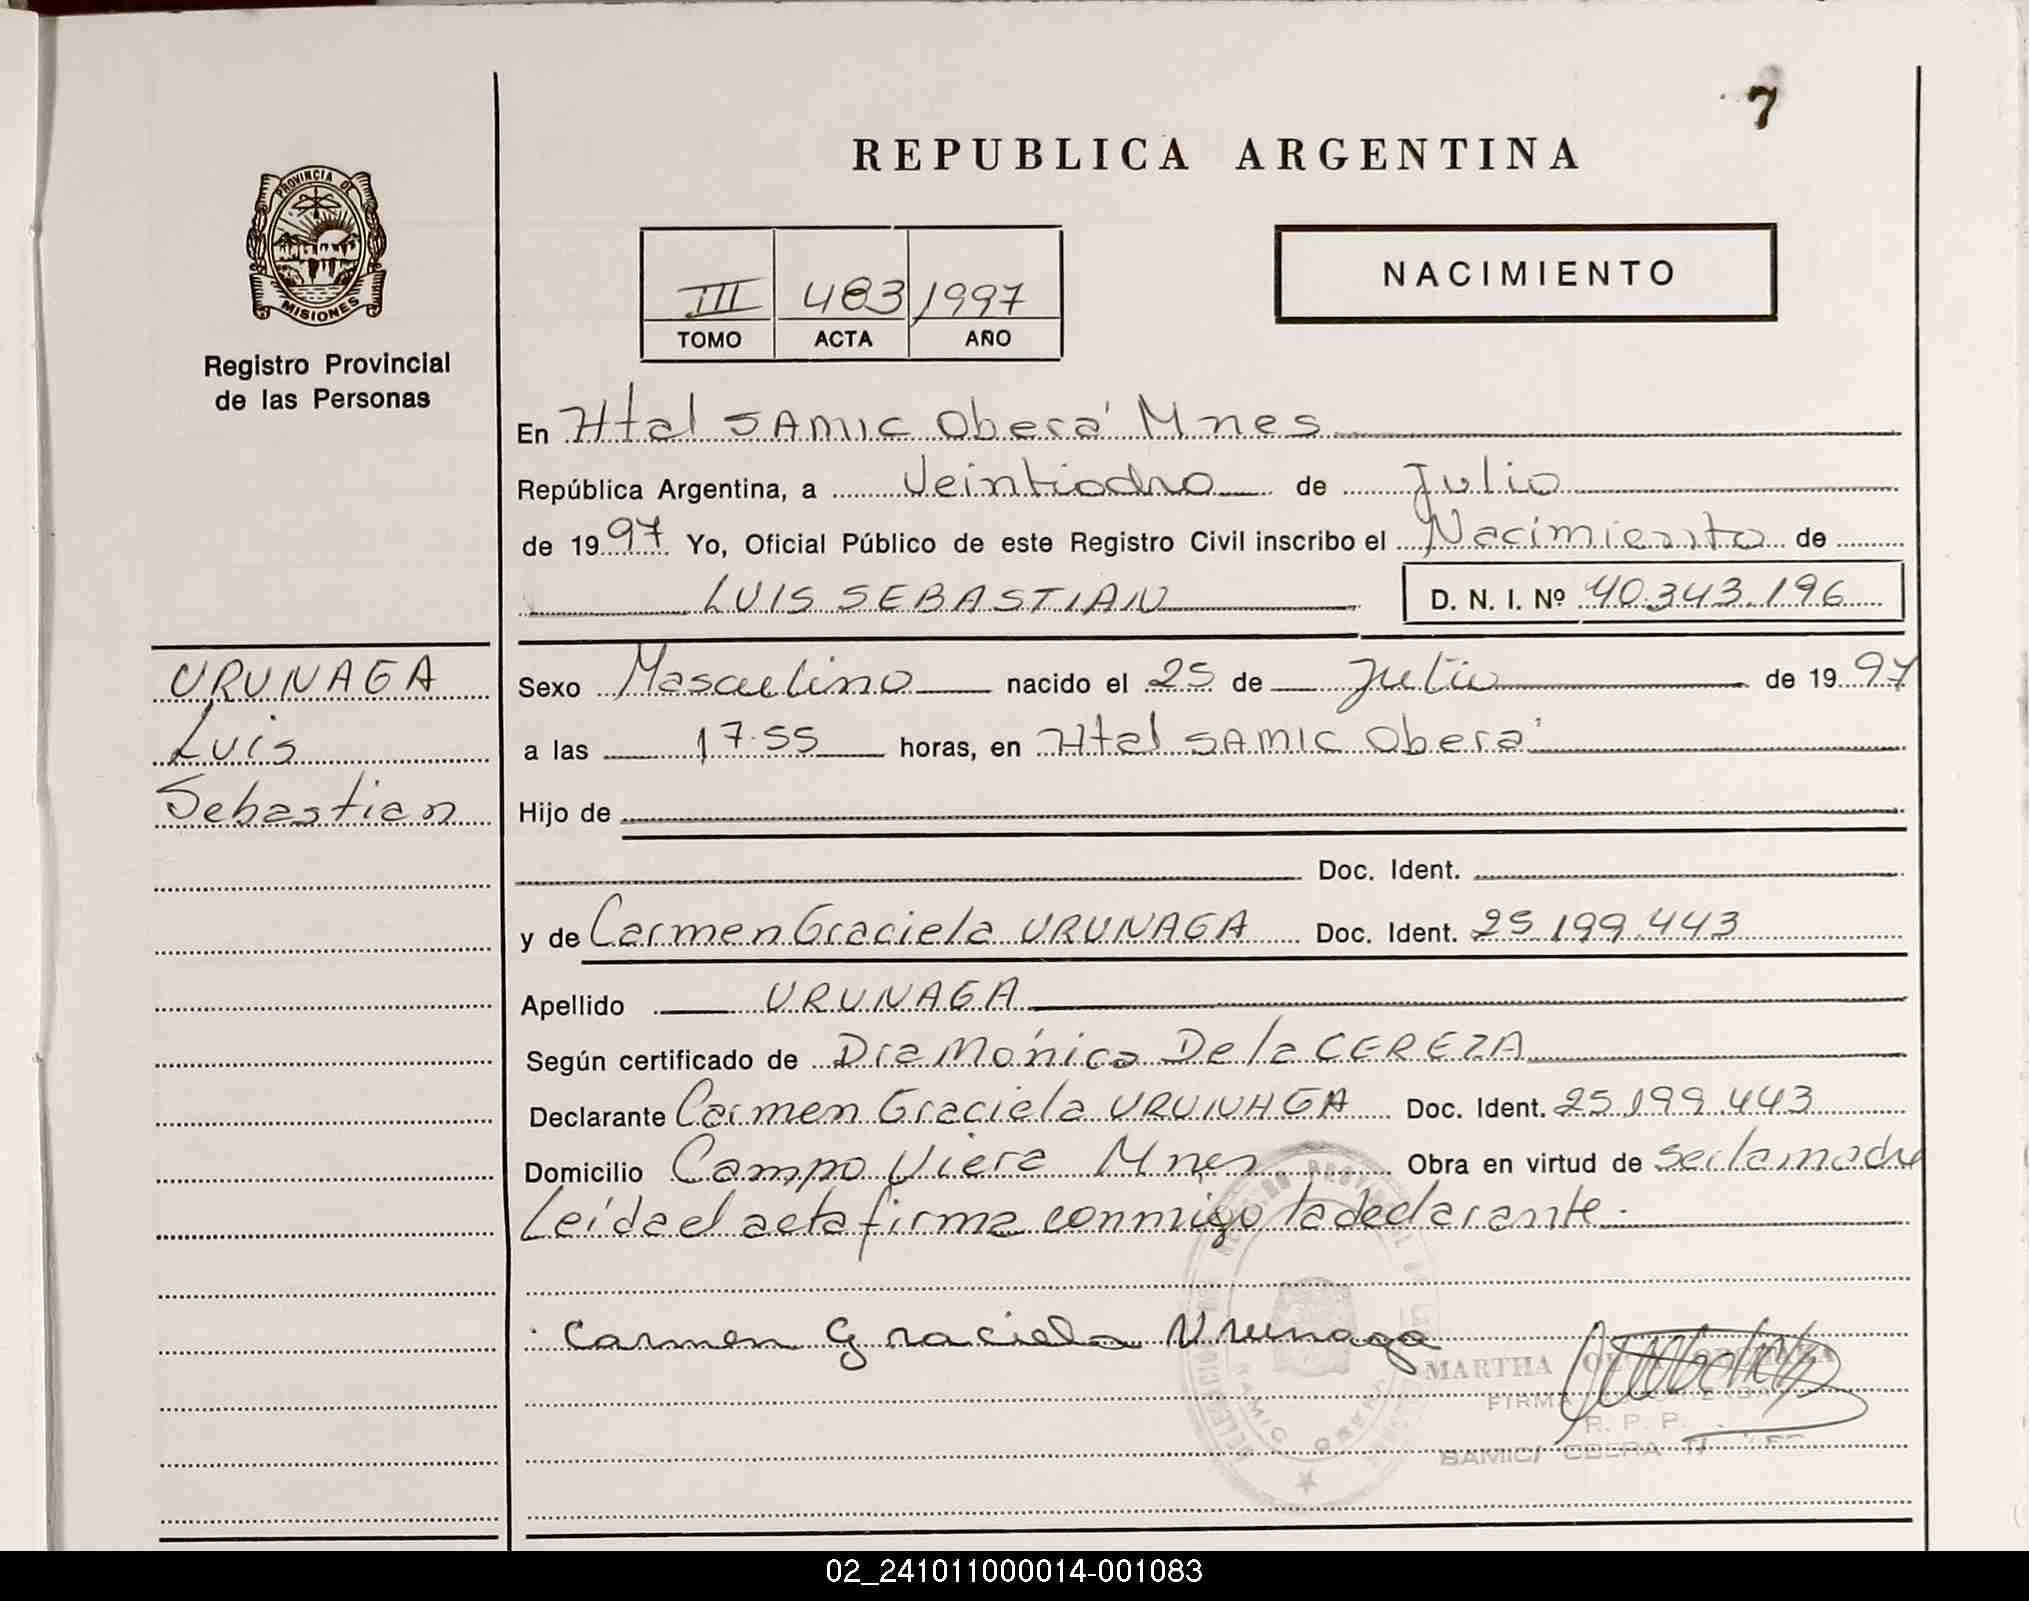 7
REPUBLICA ARGENTINA
PROVINCIA DE
MISIONES
Registro Provincial
de las Personas
III 483 1997
TOMO ACTA AÑO
NACIMIENTO
En Htal SAMIC Oberá Mnes
República Argentina, a Veintiocho de Julio
de 1997 Yo, Oficial Público de este Registro Civil inscribo el Nacimiento de
LUIS SEBASTIAN D. N. I. Nº 40.343.196
URUNAGA
Luis
Sebastian
Sexo Masculino nacido el 25 de Julio de 1997
a las 17.55 horas, en Htal SAMIC Oberá
Hijo de
Doc. Ident.
y de Carmen Graciela URUNAGA Doc. Ident. 25.199.443
Apellido URUNAGA
Según certificado de Dra Mónica De la CEREZA
Declarante Carmen Graciela URUNAGA Doc. Ident. 25.199.443
Domicilio Campo Viera Mnes Obra en virtud de ser la madre
Leída el acta firma conmigo la declarante.
Carmen Graciela Urunaga
MARTHA
FIRMA
R. P. P.
SAMIC OBERA
SAMIC OBERA
02_241011000014-001083